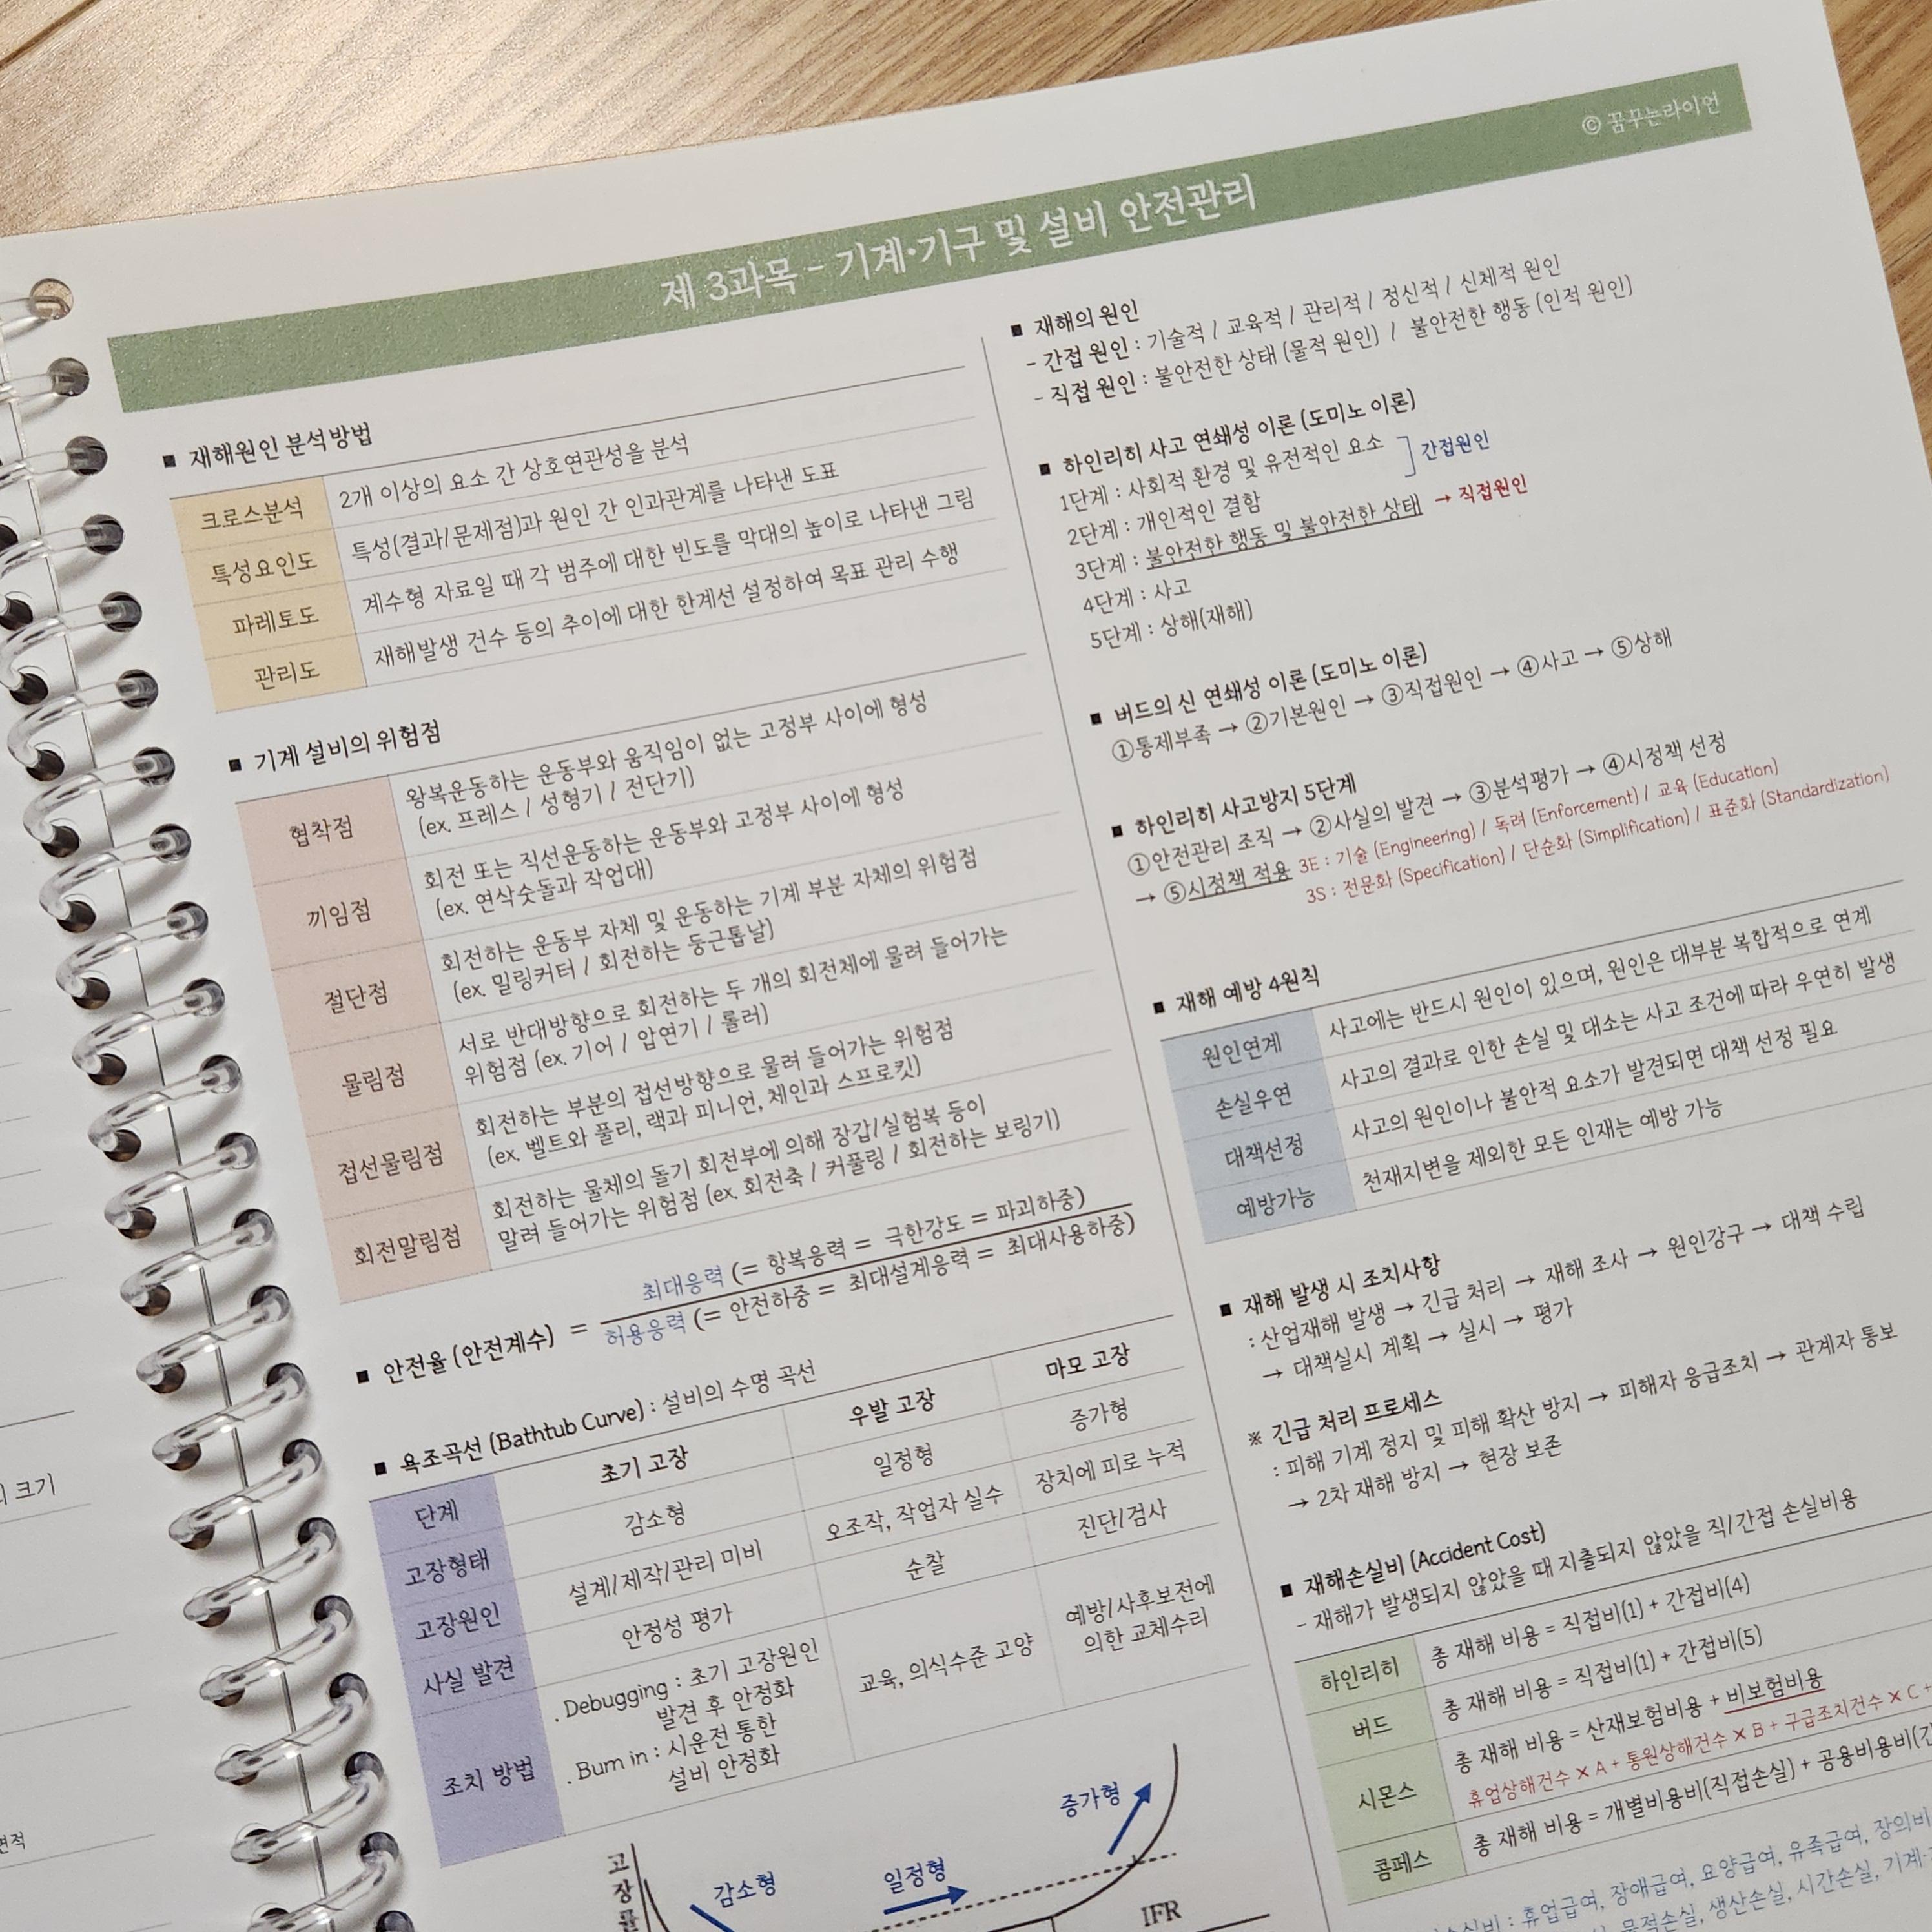 © 꿈꾸는라이언
제 3과목 - 기계·기구 및 설비 안전관리
■ 재해원인 분석방법
크로스분석 2개 이상의 요소 간 상호연관성을 분석
특성요인도 특성(결과/문제점)과 원인 간 인과관계를 나타낸 도표
파레토도 계수형 자료일 때 각 범주에 대한 빈도를 막대의 높이로 나타낸 그림
관리도 재해발생 건수 등의 추이에 대한 한계선 설정하여 목표 관리 수행
■ 기계 설비의 위험점
협착점 왕복운동하는 운동부와 움직임이 없는 고정부 사이에 형성
(ex. 프레스 / 성형기 / 전단기)
끼임점 회전 또는 직선운동하는 운동부와 고정부 사이에 형성
(ex. 연삭숫돌과 작업대)
절단점 회전하는 운동부 자체 및 운동하는 기계 부분 자체의 위험점
(ex. 밀링커터 / 회전하는 둥근톱날)
물림점 서로 반대방향으로 회전하는 두 개의 회전체에 물려 들어가는
위험점 (ex. 기어 / 압연기 / 롤러)
접선물림점 회전하는 부분의 접선방향으로 물려 들어가는 위험점
(ex. 벨트와 풀리, 랙과 피니언, 체인과 스프로킷)
회전말림점 회전하는 물체의 돌기 회전부에 의해 장갑/실험복 등이
말려 들어가는 위험점 (ex. 회전축 / 커풀링 / 회전하는 보링기)
■ 안전율 (안전계수) =
최대응력 (= 항복응력 = 극한강도 = 파괴하중)
허용응력 (= 안전하중 = 최대설계응력 = 최대사용하중)
■ 욕조곡선 (Bathtub Curve) : 설비의 수명 곡선
단계 초기 고장 우발 고장 마모 고장
고장형태 감소형 일정형 증가형
고장원인 설계/제작/관리 미비 오조작, 작업자 실수 장치에 피로 누적
사실 발견 안정성 평가 순찰 진단/검사
조치 방법
. Debugging : 초기 고장원인
발견 후 안정화
. Burn in : 시운전 통한
설비 안정화
교육, 의식수준 고양
예방/사후보전에
의한 교체수리
고장률
감소형
일정형
증가형
IFR
■ 재해의 원인
- 간접 원인 : 기술적 / 교육적 / 관리적 / 정신적 / 신체적 원인
- 직접 원인 : 불안전한 상태 (물적 원인) / 불안전한 행동 (인적 원인)
■ 하인리히 사고 연쇄성 이론 (도미노 이론)
1단계 : 사회적 환경 및 유전적인 요소
2단계 : 개인적인 결함
간접원인
3단계 : 불안전한 행동 및 불안전한 상태 → 직접원인
4단계 : 사고
5단계 : 상해(재해)
■ 버드의 신 연쇄성 이론 (도미노 이론)
①통제부족 → ②기본원인 → ③직접원인 → ④사고 → ⑤상해
■ 하인리히 사고방지 5단계
①안전관리 조직 → ②사실의 발견 → ③분석평가 → ④시정책 선정
→ ⑤시정책 적용 3E : 기술 (Engineering) / 독려 (Enforcement) / 교육 (Education)
3S : 전문화 (Specification) / 단순화 (Simplification) / 표준화 (Standardization)
■ 재해 예방 4원칙
원인연계 사고에는 반드시 원인이 있으며, 원인은 대부분 복합적으로 연계
손실우연 사고의 결과로 인한 손실 및 대소는 사고 조건에 따라 우연히 발생
대책선정 사고의 원인이나 불안적 요소가 발견되면 대책 선정 필요
예방가능 천재지변을 제외한 모든 인재는 예방 가능
■ 재해 발생 시 조치사항
: 산업재해 발생 → 긴급 처리 → 재해 조사 → 원인강구 → 대책 수립
→ 대책실시 계획 → 실시 → 평가
※ 긴급 처리 프로세스
: 피해 기계 정지 및 피해 확산 방지 → 피해자 응급조치 → 관계자 통보
→ 2차 재해 방지 → 현장 보존
■ 재해손실비 (Accident Cost)
- 재해가 발생되지 않았을 때 지출되지 않았을 직/간접 손실비용
하인리히 총 재해 비용 = 직접비(1) + 간접비(4)
버드 총 재해 비용 = 직접비(1) + 간접비(5)
시몬스 총 재해 비용 = 산재보험비용 + 비보험비용
휴업상해건수 × A + 통원상해건수 × B + 구급조치건수 × C +
콤페스 총 재해 비용 = 개별비용비(직접손실) + 공용비용비(간
: 휴업급여, 장애급여, 요양급여, 유족급여, 장의비
물적손실, 생산손실, 시간손실, 기계·
크기
면적